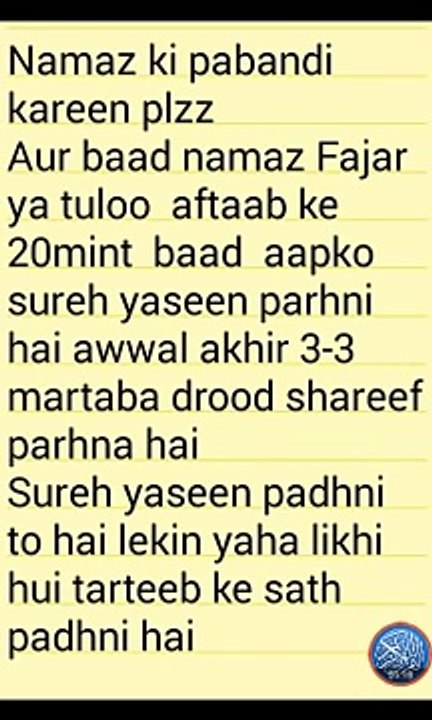 Namaz ki pabandi
kareen plzz
Aur baad namaz Fajar
ya tuloo aftaab ke
20mint baad aapko
sureh yaseen parhni
hai awwal akhir 3-3
martaba drood shareef
parhna hai
Sureh yaseen padhni
to hai lekin yaha likhi
hui tarteeb ke sath
padhni hai